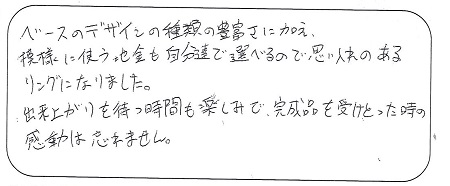 ベースのデザインの種類の豊富さに加え、
模様に使う地金も自分達で選べるので思い入れのある
リングになりました。
出来上がりを待つ時間も楽しみで、完成品を受けとった時の
感動は忘れません。